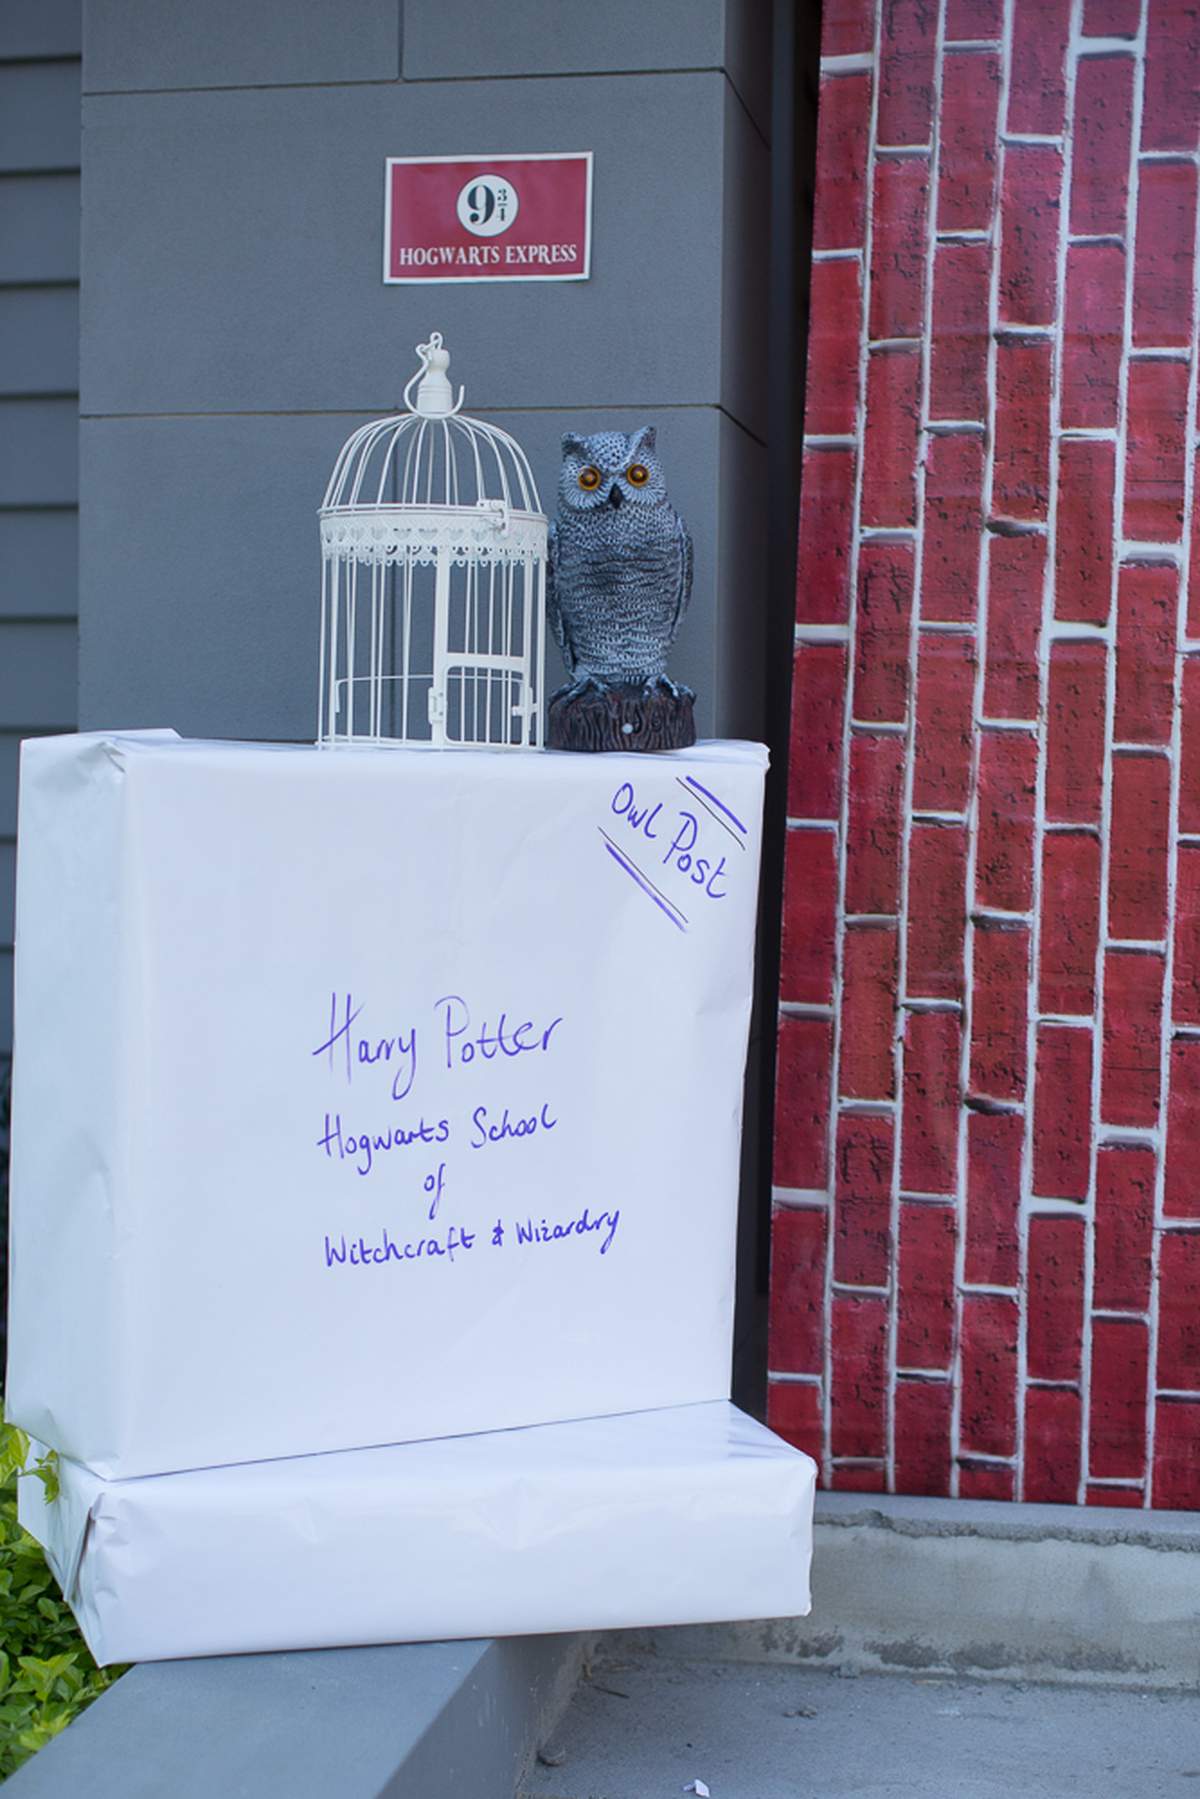 9 3/4
HOGWARTS EXPRESS
Owl Post
Harry Potter
Hogwarts School
of
Witchcraft & Wizardry